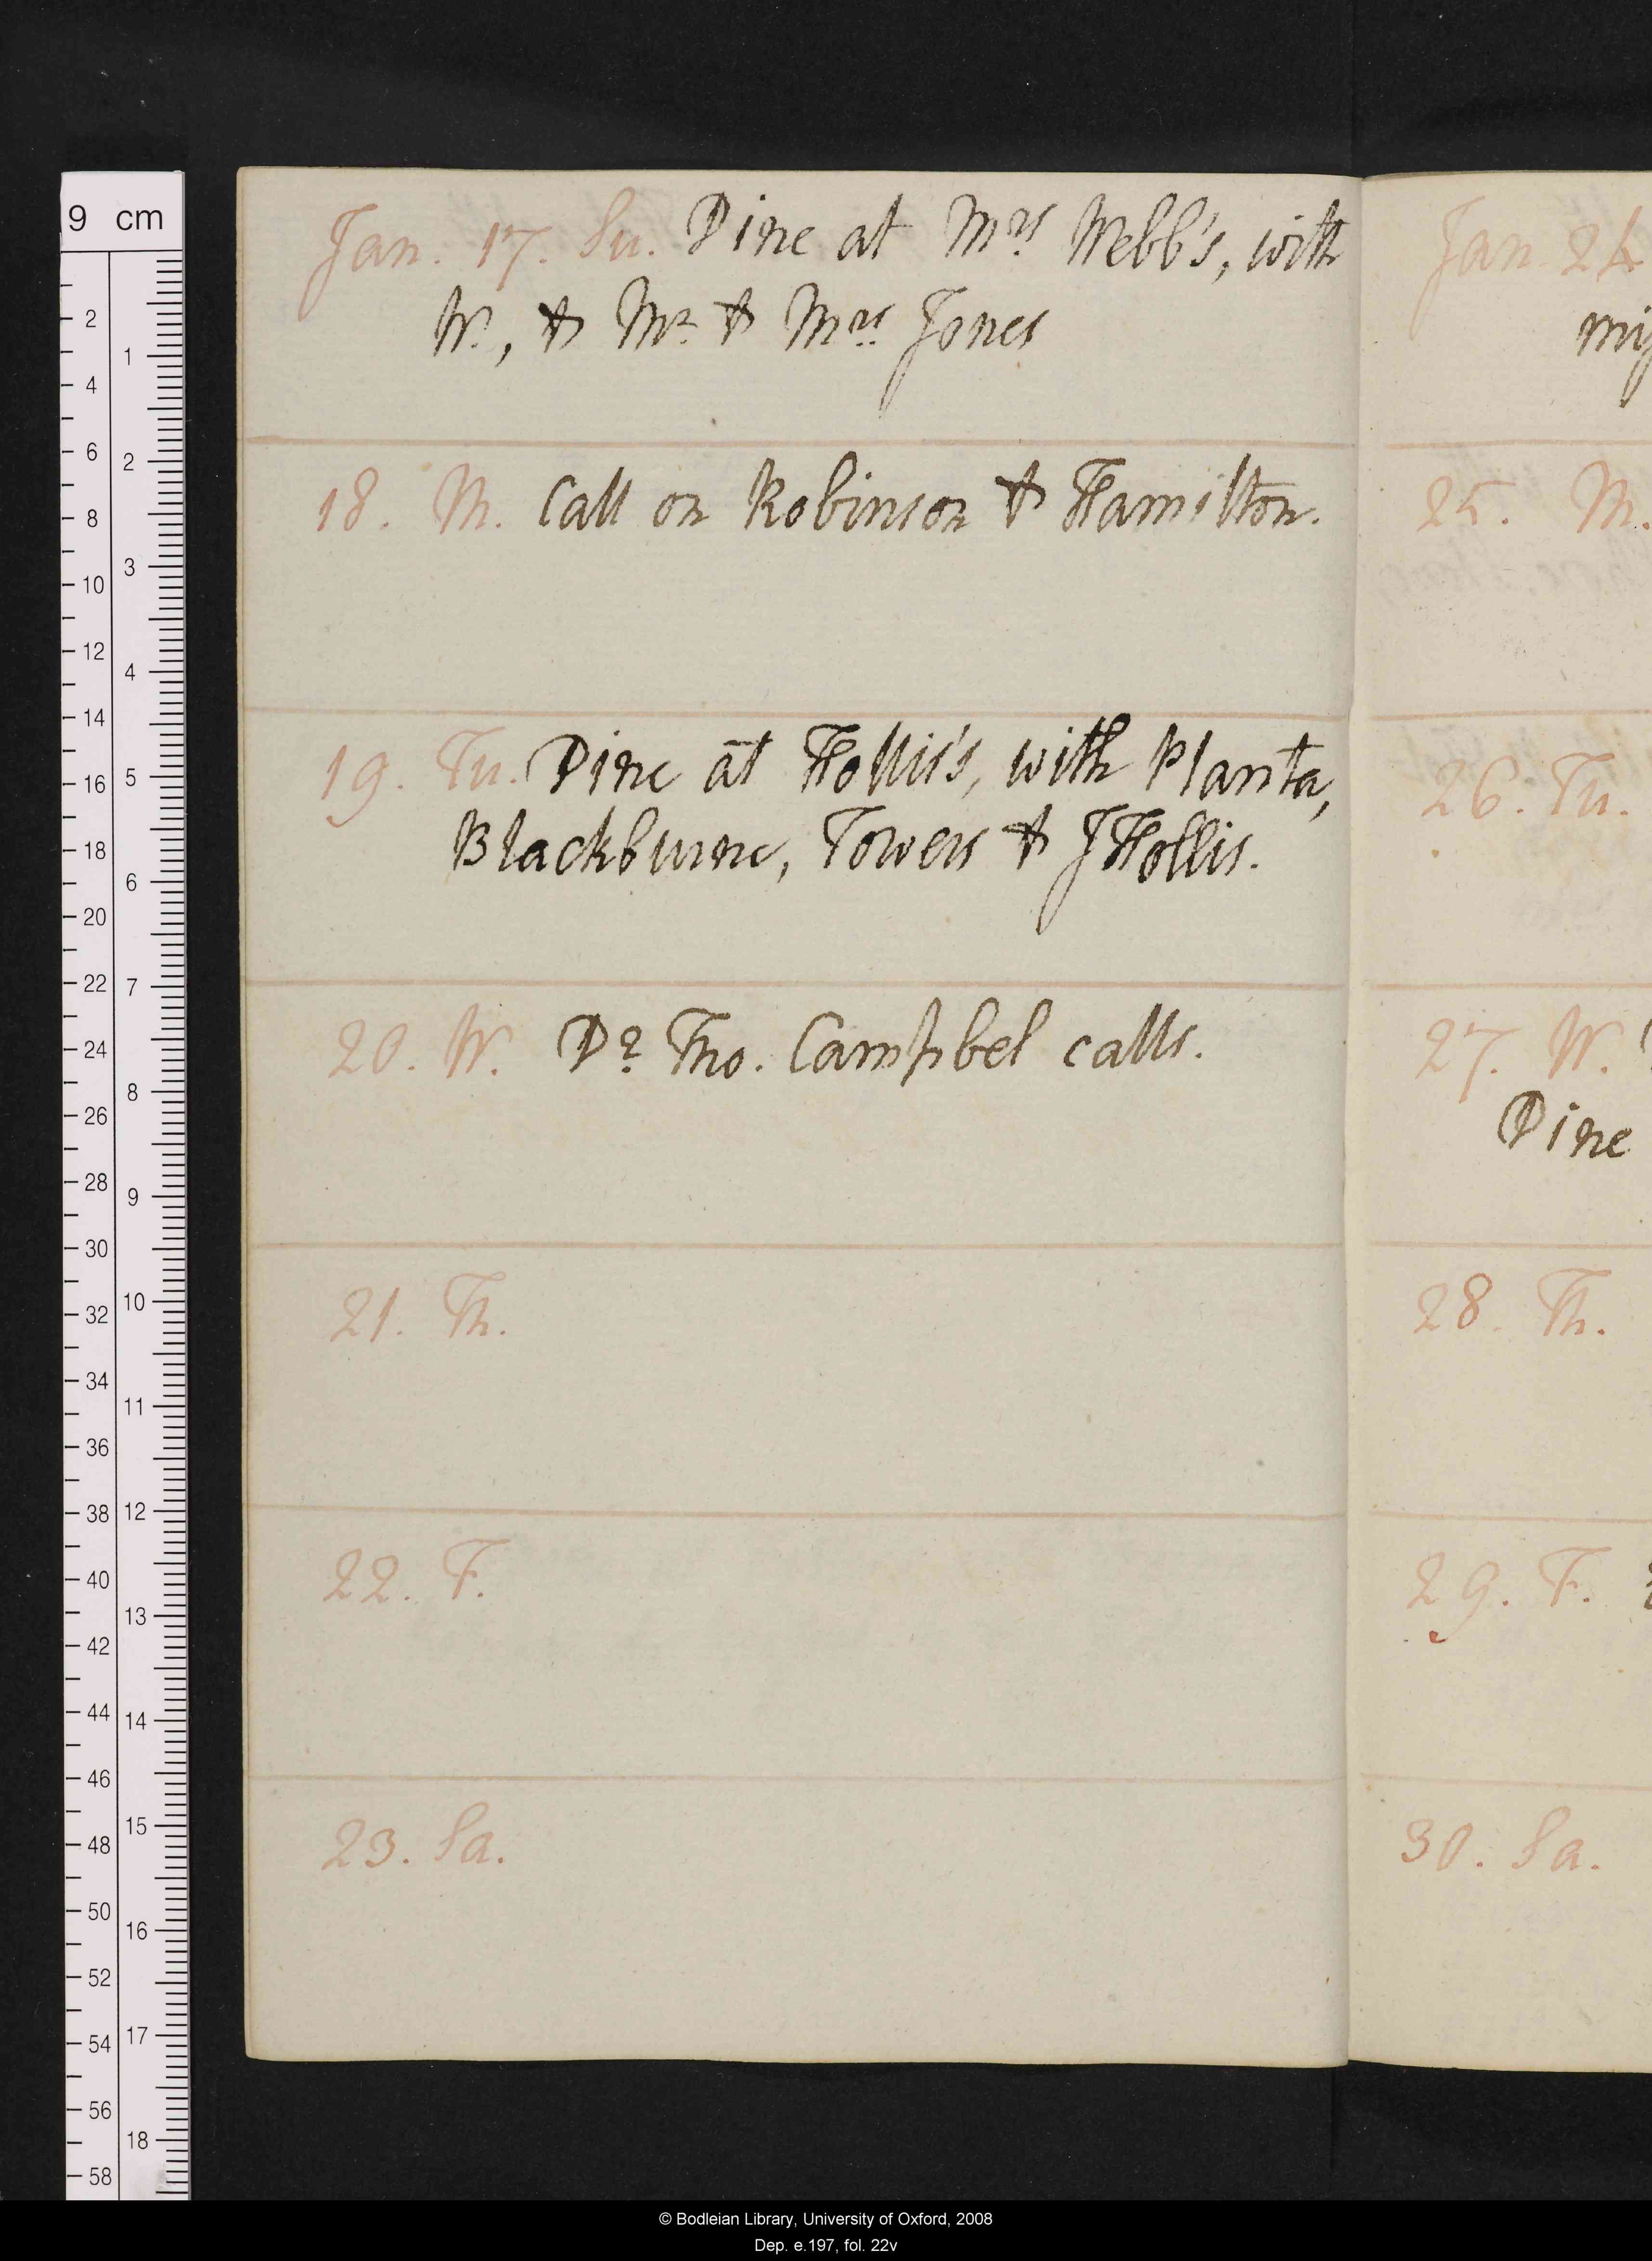 Jan. 17. Su. Dine at Mrs Webb's, with
W., & Mr. & Mrs. Jones
18. M. Call on Robinson & Hamilton.
19. Tu. Dine at Hollis's, with Planta,
Blackburne, Towers & J Hollis.
20. W. Dr. Tho. Campbel calls.
21. Th.
22. F.
23. Sa.
Jan 24
25. M.
26. Tu.
27. W.
Dine
28. Th.
29. F.
30. Sa.
9 cm
2
4
6
8
10
12
14
16
18
20
22
24
26
28
30
32
34
36
38
40
42
44
46
48
50
52
54
56
58
1
2
3
4
5
6
7
8
9
10
11
12
13
14
15
16
17
18
© Bodleian Library, University of Oxford, 2008
Dep. e.197, fol. 22v